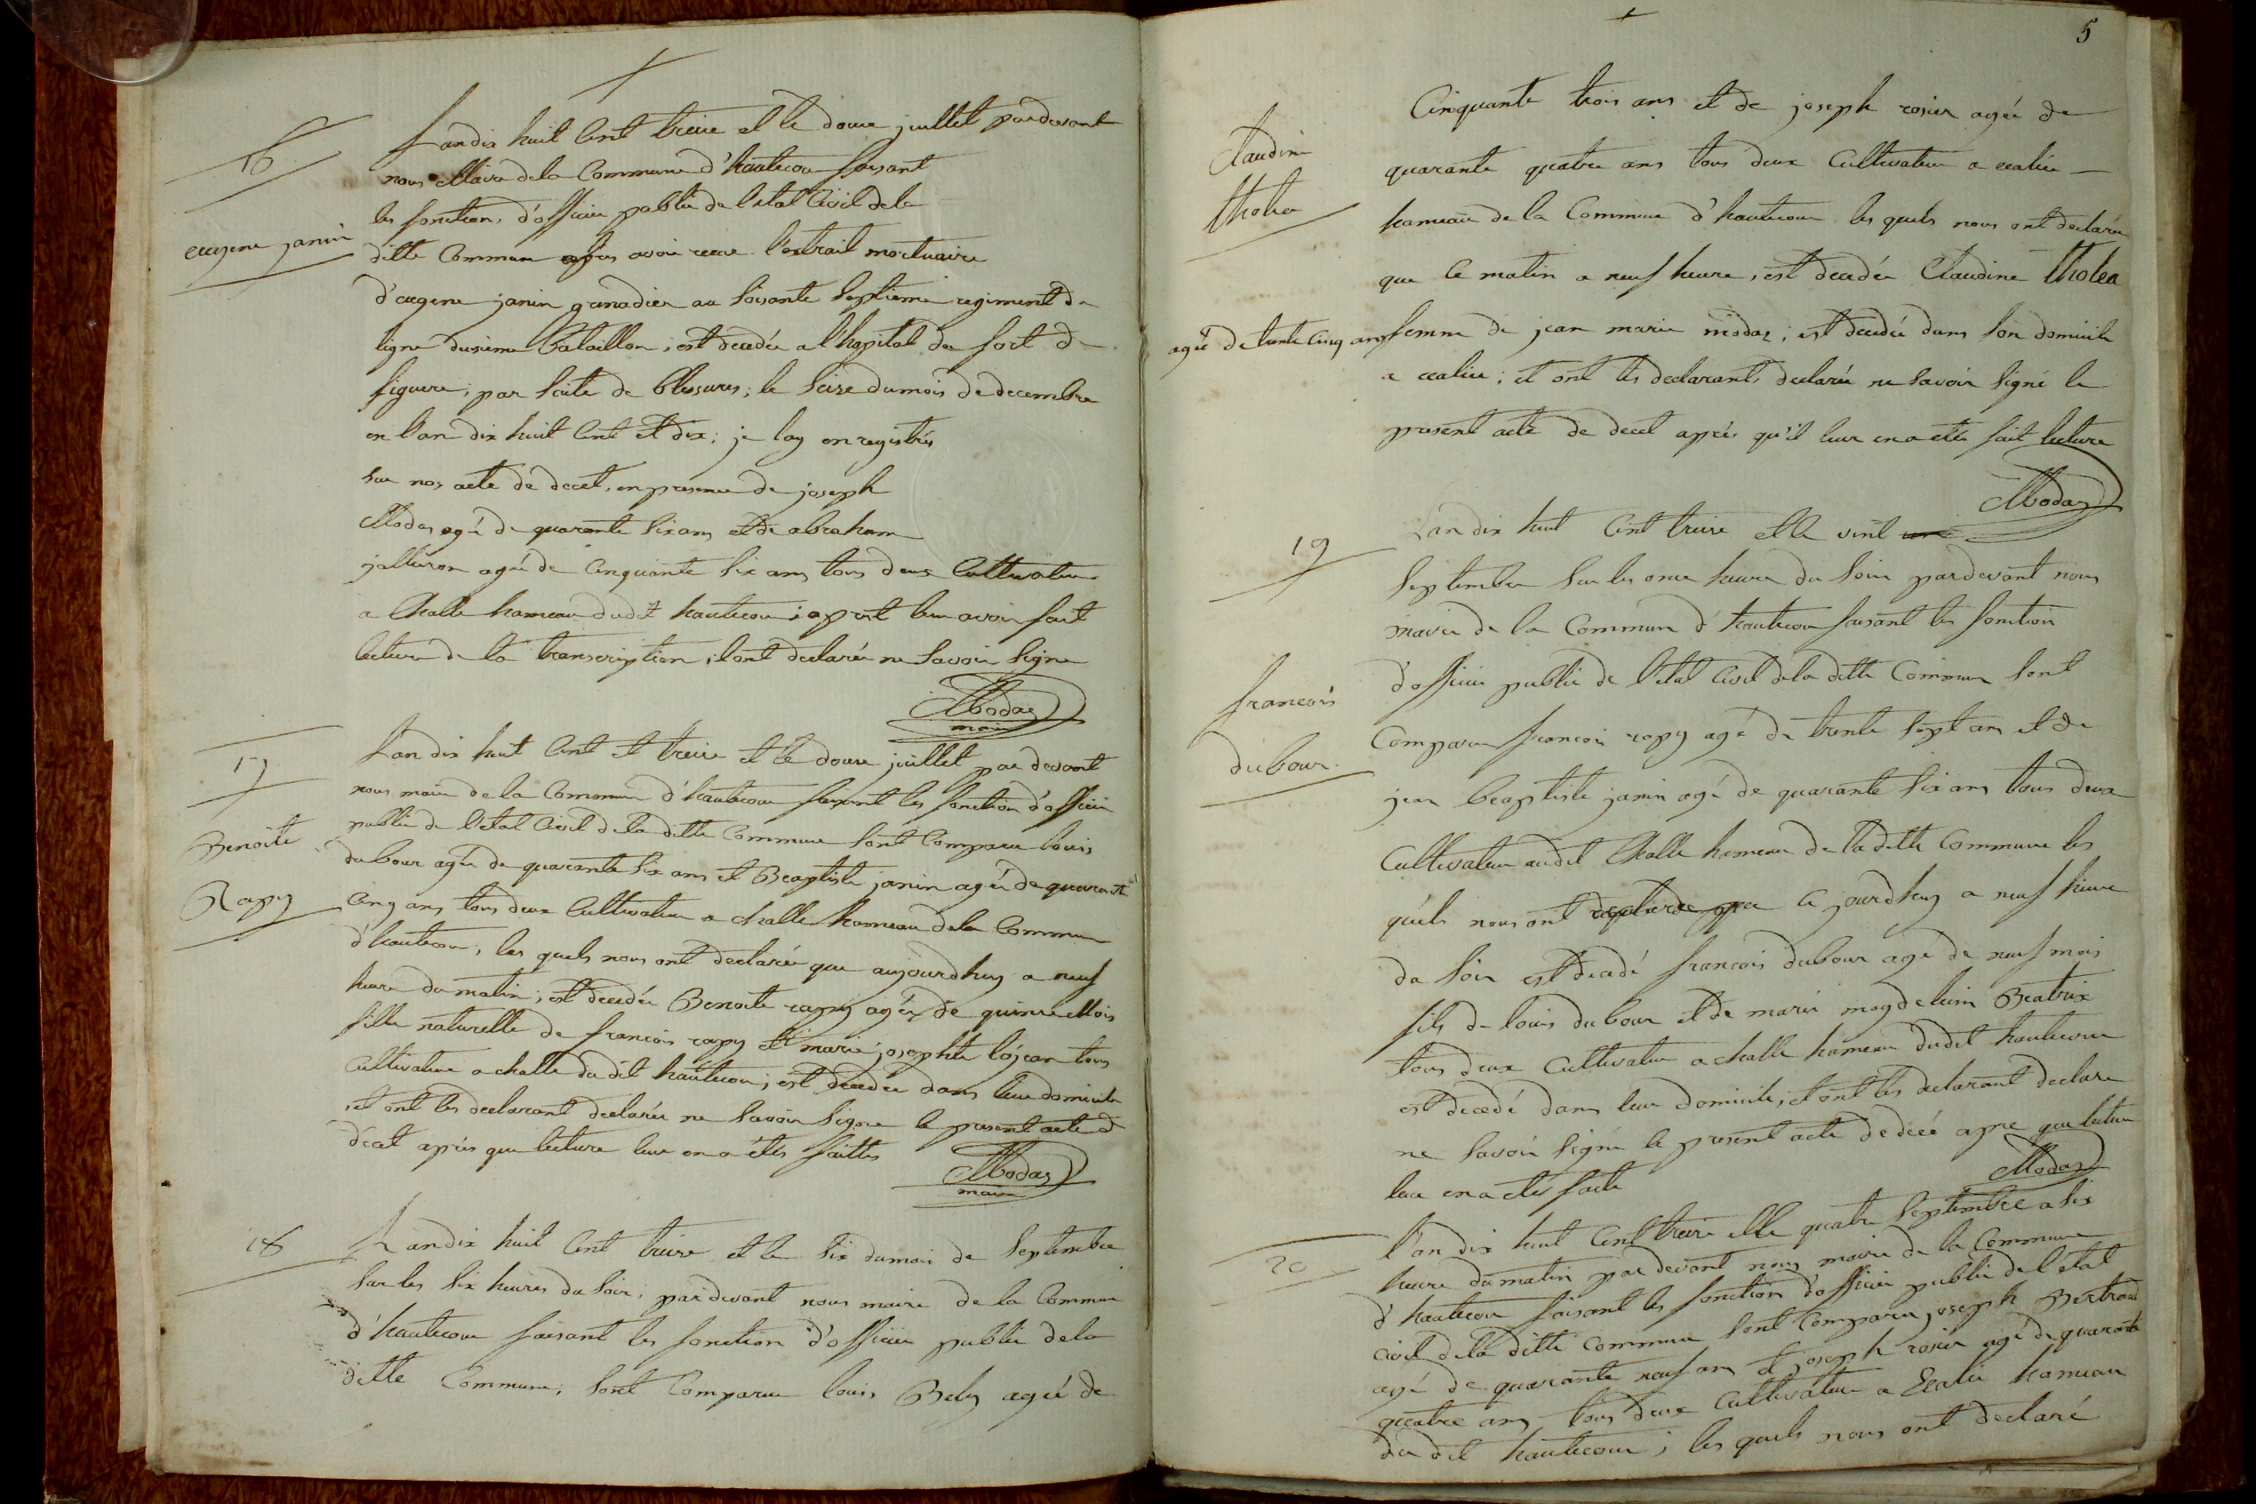 16
eugene janin
Landix huit Cent treize et le douze juillet pardevant
nous Maire dela Commune d'hautecour faisant
les fonction d'officier public de l'etat Civil dela
ditte Commune apres avoir recue l'extrait mortuaire
d'eugene janin grenadier au soisante septieme regiment de
ligne deusieme Bataillon; est decedée a l'hopital du fort de
figuere; par suite de Blessures; le seize dumois de decembre
en l'an dix huit Cent et dix; je lay enregistrés
sur nos acte de decet, en presence de joseph
Modas agé de quarante six ans et de abraham
jalleron agé de Cinquante six ans tous deux Cultivateur
a Challe hameau dudit hautecour; apret leur avoir fait
lecture de la transcription, ilont declarée ne savoir signe
Modas
maire
17
Benoite
Rapy
Landix huit Cent et treize et le douze juillet par devant
nous maire de la Commune d'hautecour faisant les fonction d'officier
public de l'etat Civil dela ditte Commune sont Comparue louis
dubour agée de quarante six ans et Beaptiste janin agée de quarante
Cinq ans tous deux Cultivateur a challe hameau dela Commune
d'hautecour, les quels nous ont declarée que aujourdhuy a neuf
heure du matin; est decedée Benoite rapy agée de quinze Mois
fille naturelle de francois rapy et marie josephte lojean tous
Cultivateur a challe du dit hautecour; est decedée dans leur domicile
et ont les declarant declarée ne savoir signe le present acte d
decet aprés que lecture leur en a étés faittes
Modas
maire
18
Landix huit Cent treize et le six dumois de Septembre
sur les six heures du soir; pardevant nous maire de la Commune
d'hautecour faisant les fonction d'officier public dela
ditte Commune; sont Comparue louis Bely agée de
5
Claudine
tholea
Cinquante trois ans et de joseph rosier agée de
quarante quatre ans tous deux Cultivateur a ecalier
hameau de la Commune d'hautecour les quels nous ont declarée
que Ce matin a neuf heure, est decedée Claudine tholea
agée de trente Cinq ans femme de jean marie modas; est decedée dans son domicile
a ecalier; et ont les declarants declarée ne savoir signé le
present acte de decet aprés qu'il leur en a etés fait lecture
Modas
19
francois
dubour
Landix huit Cent treize et le vint
Septembre sur les onze heure du soir pardevant nous
maire de la Commune d'hautecour faisant les fonction
d'officier public de l'etat Civil dela ditte Commune sont
Comparue francois rapy agé de trente sept ans et de
jean beaptiste janin agé de quarante six ans tous deux
Cultivateur audit Challe hameau de la ditte Commune les
quels nous ont declarée que Ce jourdhuy a neuf heure
du soir est decedé francois dubour agé de neuf mois
fils de louis dubour et de marie magdeleine Beatrix
tous deux Cultivateur a challe hameau dudit hautecour
est decedé dans leur domicile, et ont les declarant declare
ne savoir signe le present acte de decé apre que lecture
leur en a etés faite
Modas
20
l'an dix huit Cent treize et le quatre Septembre a six
heure du matin par devant nous maire de la Commune
d'hautecour faisant les fonction d'officier public de l'etat
civil dela ditte Commune sont Comparue joseph Bertrand
agé de quarante neuf ans et joseph rosier agé de quarante
quatre ans tous deux Cultivateur a Ecalier hameau
du dit hautecour; les quels nous ont declaré